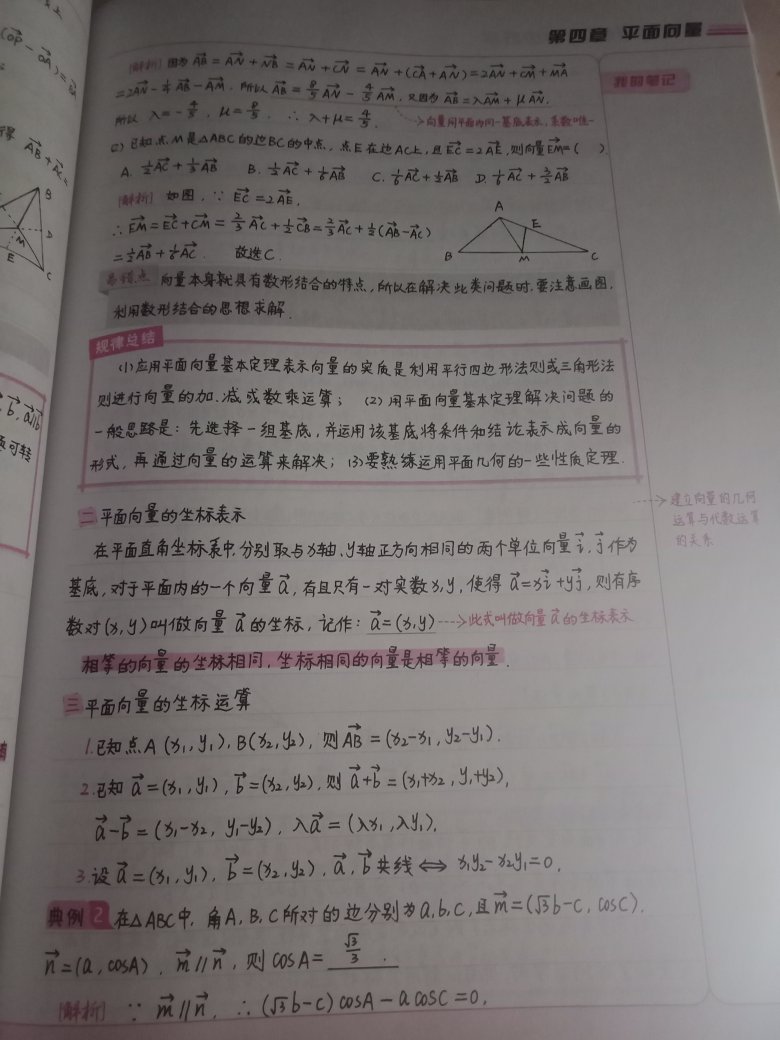 第四章 平面向量
我的笔记
[解析] 因为AB = AN + NB = AN + CN = AN + (CA + AN) = 2AN + CM + MA
= 2AN - 1/4 AB - AM, 所以 AB = 8/5 AN - 4/5 AM, 又因为 AB = λAM + μAN,
所以 λ = -4/5, μ = 8/5, ∴ λ + μ = 4/5.
→向量用平面内同一基底表示,系数唯一
(2) 已知点M是△ABC的边BC的中点,点E在边AC上,且EC = 2AE,则向量EM = ( ).
A. 1/2 AC + 1/3 AB B. 1/2 AC + 1/6 AB C. 1/6 AC + 1/2 AB D. 1/6 AC + 3/2 AB
[解析] 如图, ∵ EC = 2AE,
∴ EM = EC + CM = 2/3 AC + 1/2 CB = 2/3 AC + 1/2 (AB - AC)
= 1/2 AB + 1/6 AC. 故选C.
A
E
B M C
易错点 向量本身就具有数形结合的特点,所以在解决此类问题时,要注意画图,
利用数形结合的思想求解.
规律总结
(1) 应用平面向量基本定理表示向量的实质是利用平行四边形法则或三角形法
则进行向量的加、减或数乘运算; (2) 用平面向量基本定理解决问题的
一般思路是: 先选择一组基底,并运用该基底将条件和结论表示成向量的
形式,再通过向量的运算来解决; (3) 要熟练运用平面几何的一些性质定理.
二 平面向量的坐标表示
→建立向量的几何
运算与代数运算
的关系
在平面直角坐标系中,分别取与x轴、y轴正方向相同的两个单位向量i, j作为
基底,对于平面内的一个向量a,有且只有一对实数x,y,使得 a = xi + yj,则有序
数对(x,y)叫做向量a的坐标,记作: a = (x,y) →此式叫做向量a的坐标表示
相等的向量的坐标相同,坐标相同的向量是相等的向量.
三 平面向量的坐标运算
1. 已知点A(x₁,y₁), B(x₂,y₂), 则AB = (x₂-x₁, y₂-y₁).
2. 已知 a = (x₁,y₁), b = (x₂,y₂), 则 a+b = (x₁+x₂, y₁+y₂),
a-b = (x₁-x₂, y₁-y₂), λa = (λx₁, λy₁).
3. 设 a = (x₁,y₁), b = (x₂,y₂), a, b共线 ⟺ x₁y₂-x₂y₁=0.
典例2 在△ABC中, 角A, B, C所对的边分别为a, b, c, 且m = (√3b-c, cosC),
n = (a, cosA), m∥n, 则cosA = √3/3.
[解析] ∵ m∥n, ∴ (√3b-c)cosA - acosC = 0,